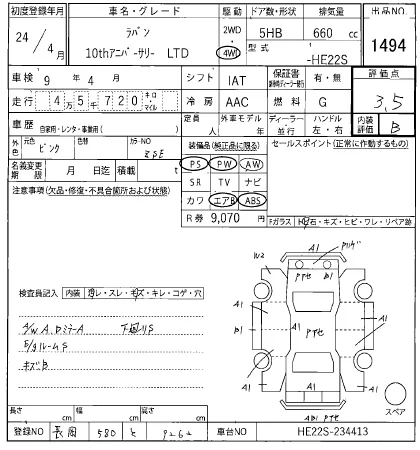 初度登録年月 車名・グレード 駆動 ドア数・形状 排気量 出品NO
24/4月 ラパン 10thアニバーサリー LTD 2WD・4WD 5HB 660 cc 1494
型式 -HE22S
車検 9年 4月 シフト IAT 保証書 有・無 評価点
走行 4万5千720 キロ・マイル 冷房 AAC 燃料 G 3.5
車歴 自家用・レンタ・事業用( ) 定員 人 外車モデル 年 ディーラー 並行 ハンドル 左・右 内装評価 B
外色 元色 ピンク 色替 カラーNO ZSE
装備品(純正品に限る) セールスポイント(正常に作動するもの)
PS PW AW
名義変更期限 月 日迄 積載 t SR TV ナビ
注意事項(欠品・修復・不具合箇所および状態) カワ エアB ABS
R券 9,070円
Fガラス 飛石・キズ・ヒビ・ワレ・リペア跡
A1
W2
A1
A1
B1
A1
A1
A1
A1
検査員記入 内装 汚レ・スレ・キズ・キレ・コゲ・穴
A/W A. Dミラー A 下廻りS
E/gルームS
キズB
スペア
長さ cm 幅 cm 高さ cm
登録NO 長岡 580 と 9262 車台NO HE22S-234413